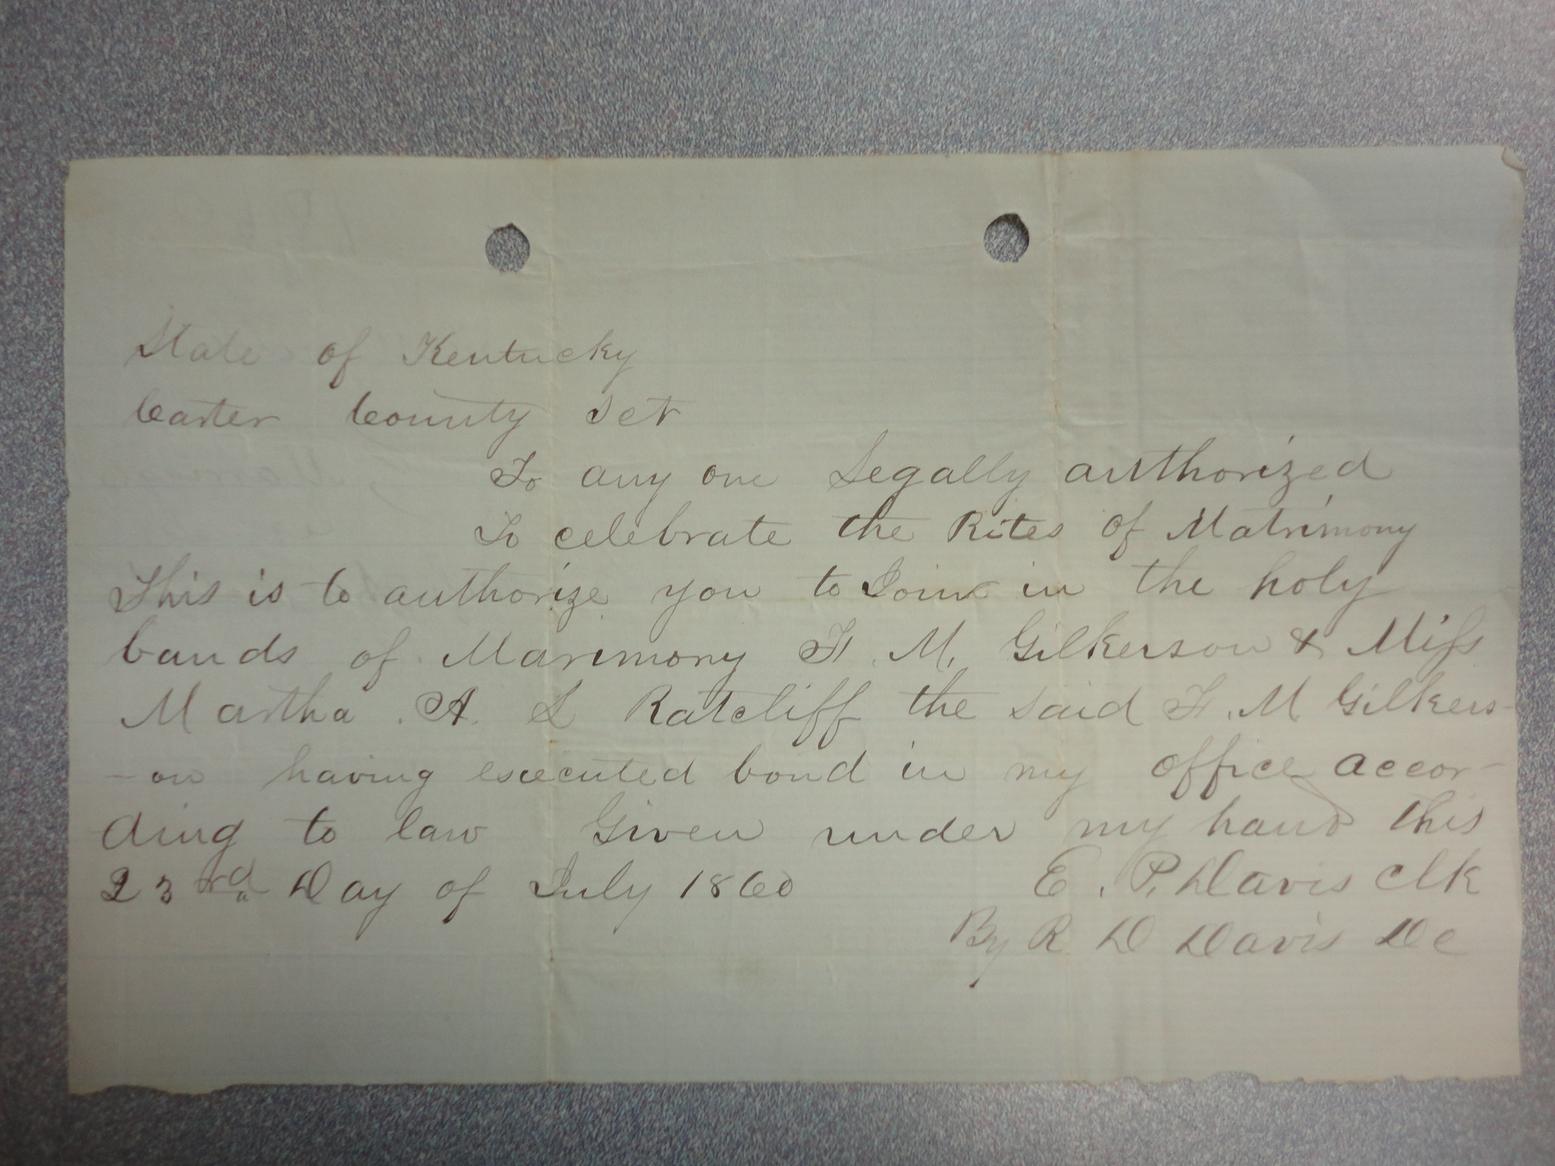 State of Kentucky
Carter County Sct
To any one Legally authorized
To celebrate the Rites of Matrimony
This is to authorize you to Join in the holy
bands of Marimony F. M. Gilkerson & Miss
Martha . A. L Ratcliff the said F. M Gilkers-
-on having executed bond in my office accor-
ding to law Given under my hand this
23rd Day of July 1860 E. P. Davis clk
By R D Davis Dc